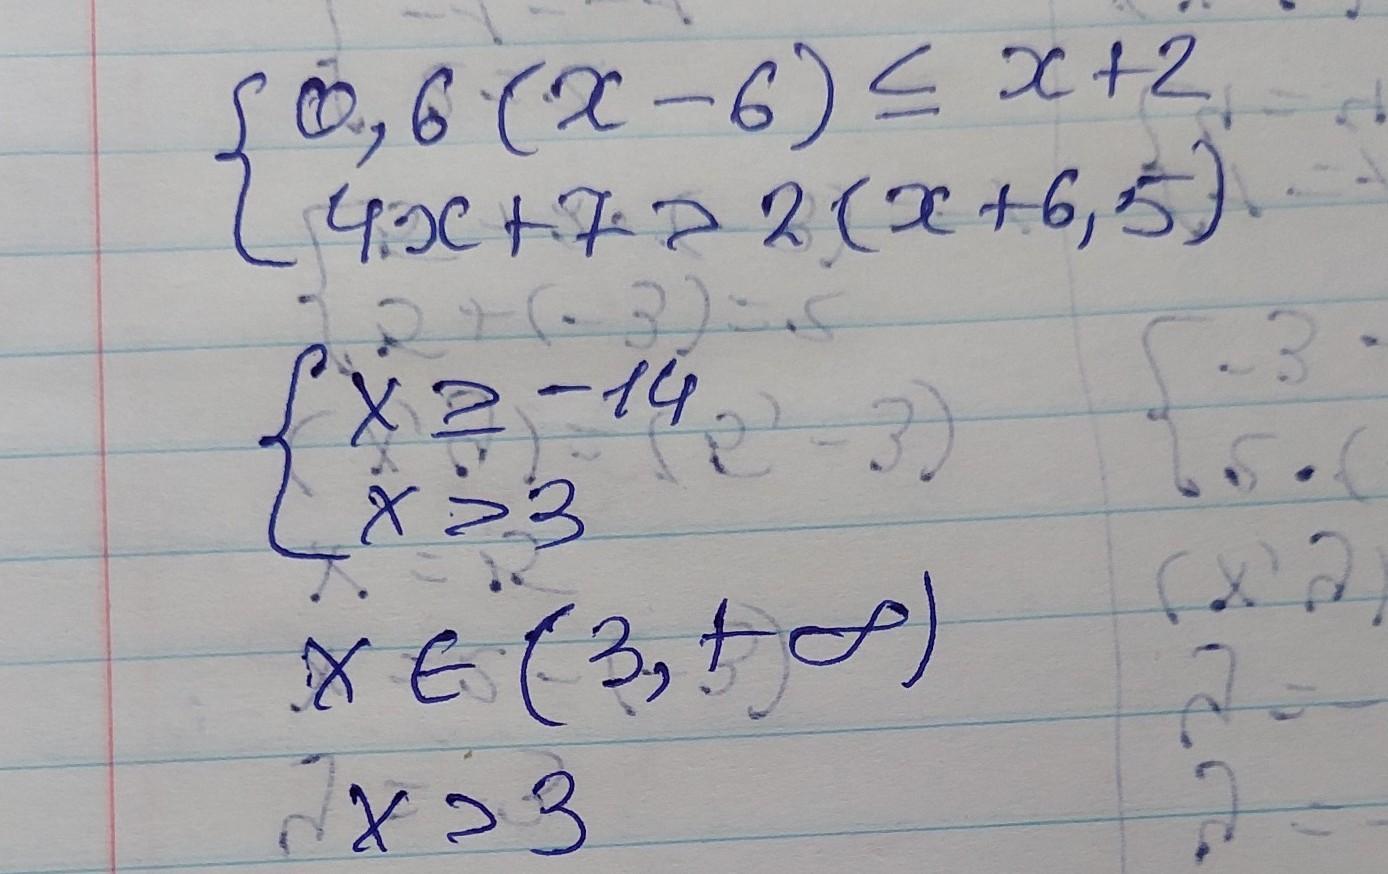 { 0,6 (x - 6) ≤ x + 2
4x + 7 > 2 (x + 6,5)
{ x ≥ -14
x > 3
x ∈ (3, + ∞)
x > 3